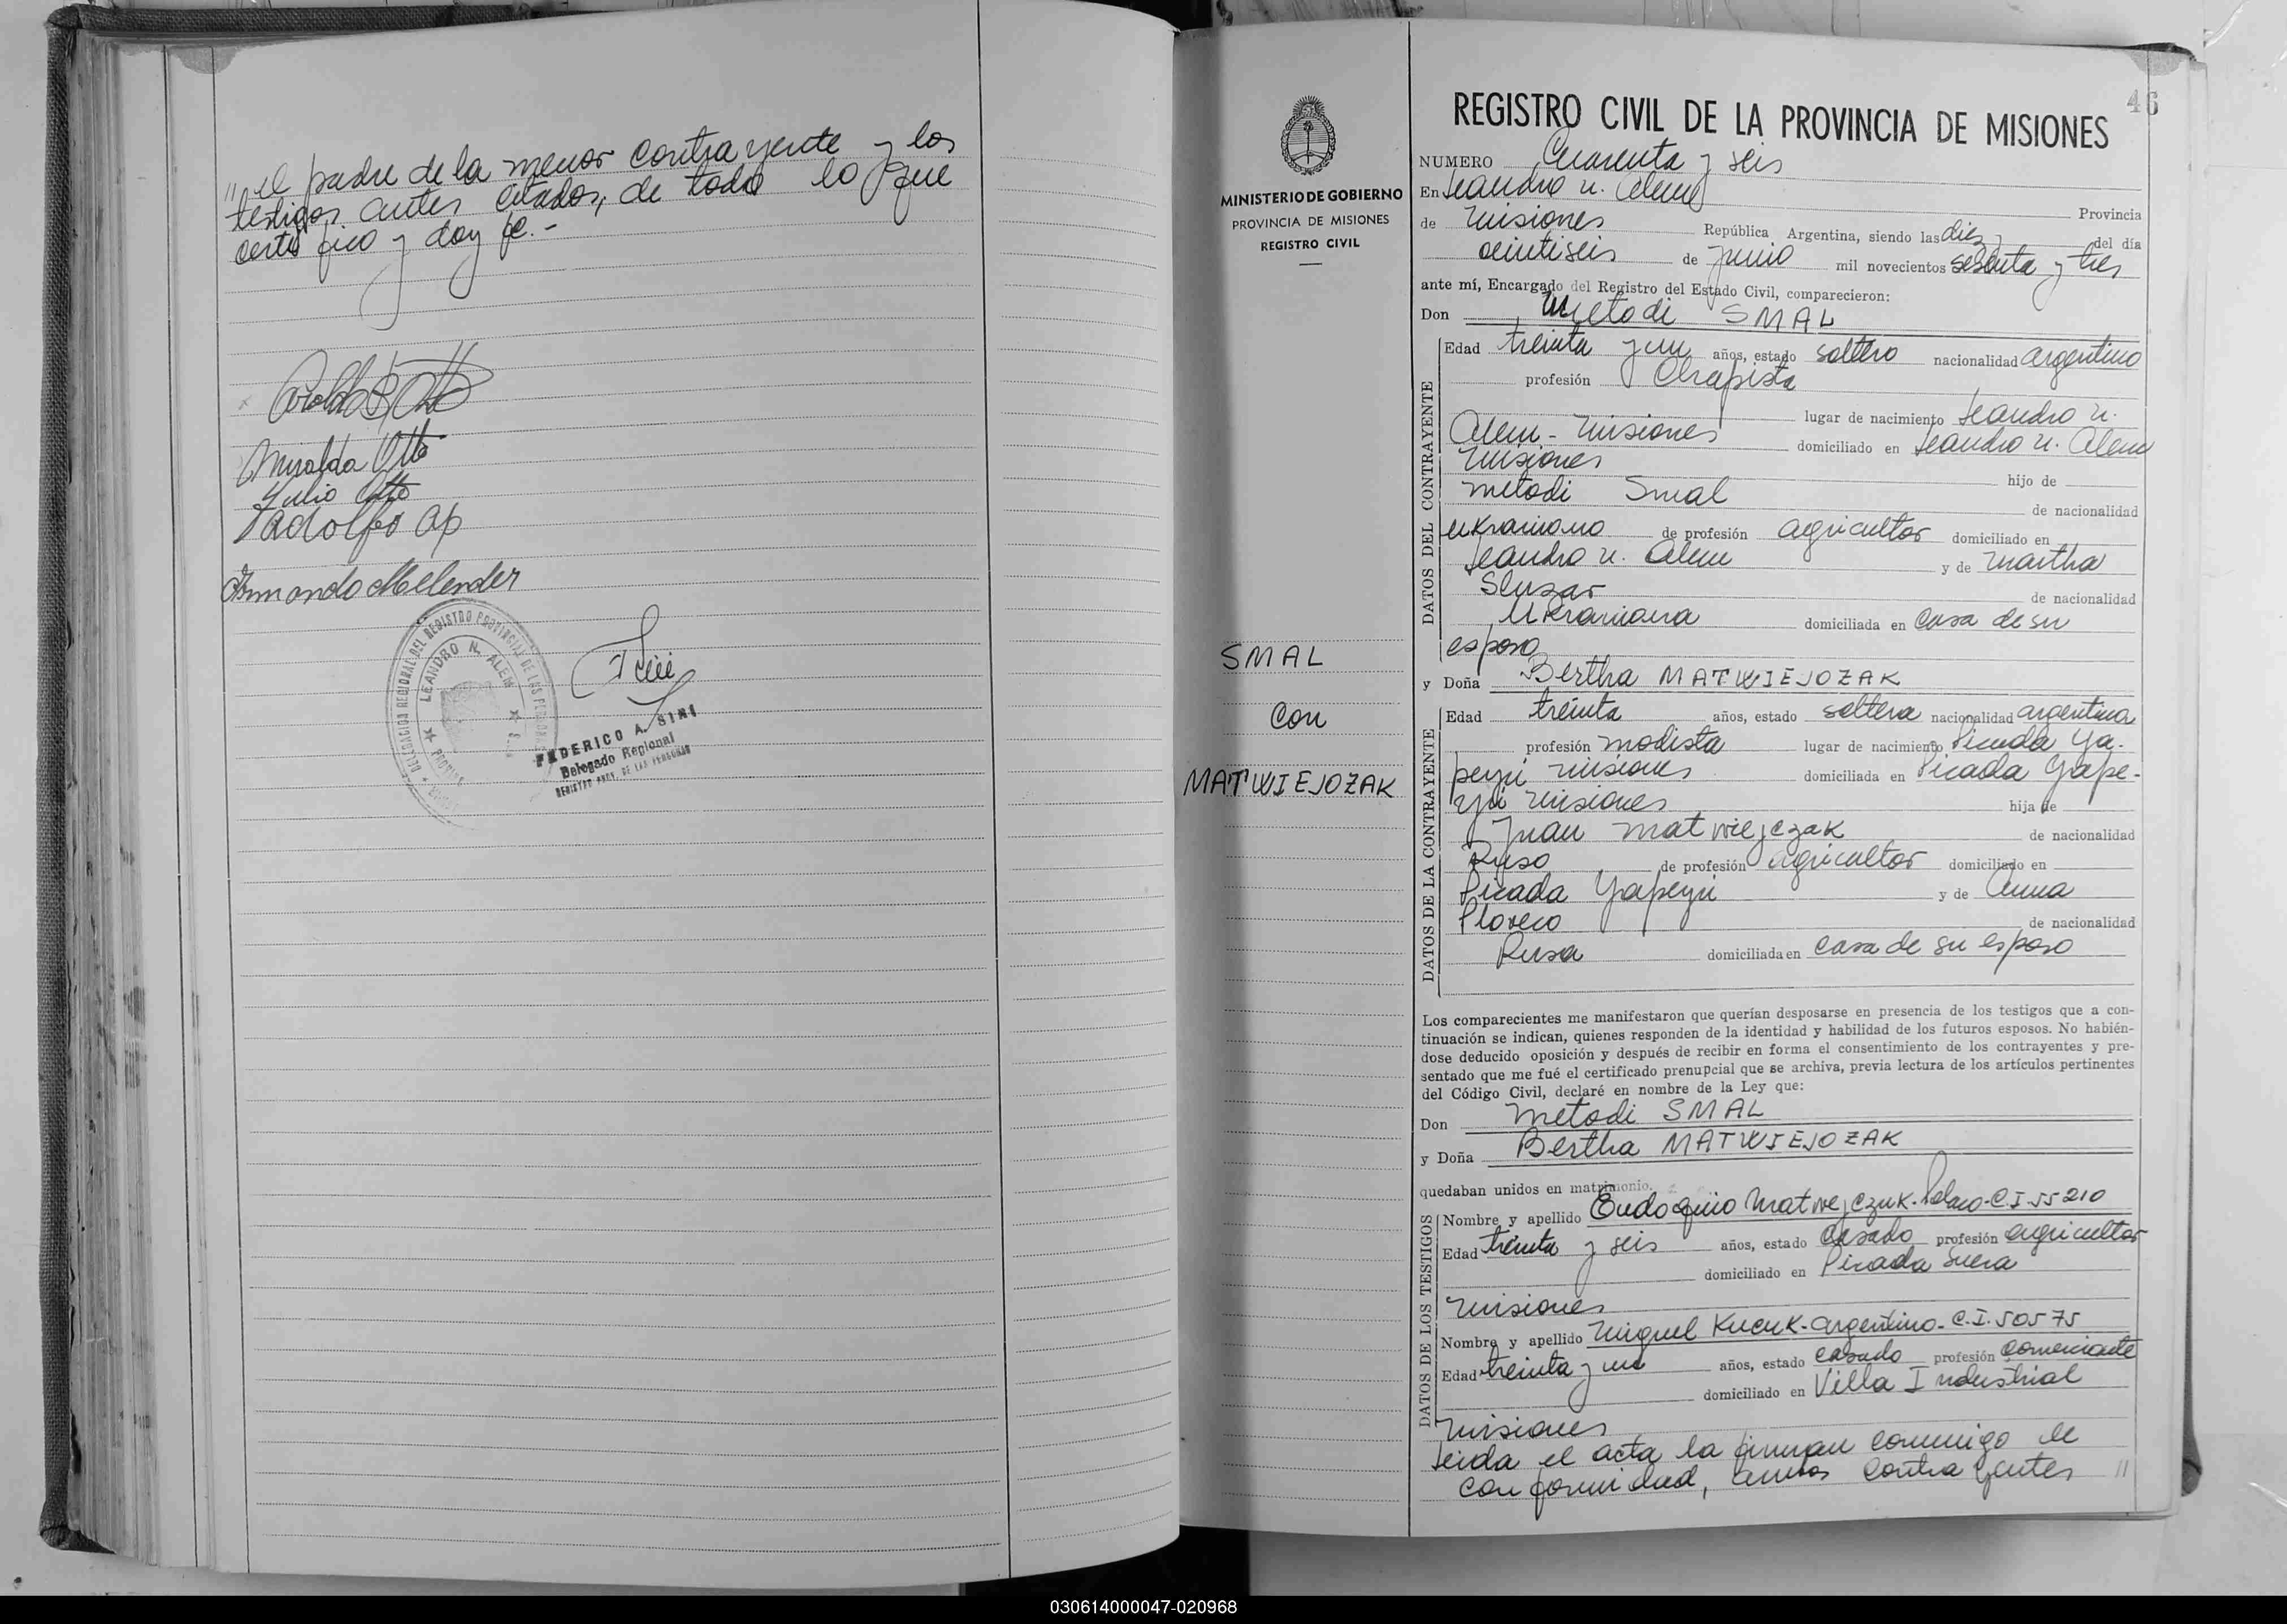 "el padre de la menor contrayente y los
testigos antes citados, de todo lo que
certifico y doy fe.-
Miralda Otto
Julio Otto
Adolfo
Armando Melender
DELEGACION REGIONAL DEL REGISTRO PROVINCIAL DE LAS PERSONAS
LEANDRO N. ALEM
FEDERICO A. SINI
Delegado Regional
REGISTRO PROV. DE LAS PERSONAS
MINISTERIO DE GOBIERNO
PROVINCIA DE MISIONES
REGISTRO CIVIL
SMAL
con
MATWIEJOZAK
46
REGISTRO CIVIL DE LA PROVINCIA DE MISIONES
NUMERO Cuarenta y seis
En Leandro N. Alem
Provincia
de Misiones República Argentina, siendo las diez del día
veintiseis de Junio mil novecientos sesenta y tres
ante mí, Encargado del Registro del Estado Civil, comparecieron:
Don Metodi SMAL
DATOS DEL CONTRAYENTE
Edad treinta y un años, estado soltero nacionalidad argentino
profesión Chapista
lugar de nacimiento Leandro N.
Alem - Misiones domiciliado en Leandro N. Alem
Misiones hijo de
Metodi Smal de nacionalidad
ukraniano de profesión agricultor domiciliado en
Leandro N. Alem y de Martha
Sluzar de nacionalidad
Ukraniana domiciliada en casa de su
esposo
y Doña Bertha MATWIEJOZAK
DATOS DE LA CONTRAYENTE
Edad treinta años, estado soltera nacionalidad argentina
profesión modista lugar de nacimiento Picada Ya-
peyú Misiones domiciliada en Picada Yape-
yú Misiones hija de
Juan Matwiejczak de nacionalidad
Ruso de profesión agricultor domiciliado en
Picada Yapeyú y de Anna
de nacionalidad
Rusa domiciliada en casa de su esposo
Los comparecientes me manifestaron que querían desposarse en presencia de los testigos que a con-
tinuación se indican, quienes responden de la identidad y habilidad de los futuros esposos. No habién-
dose deducido oposición y después de recibir en forma el consentimiento de los contrayentes y pre-
sentado que me fué el certificado prenupcial que se archiva, previa lectura de los artículos pertinentes
del Código Civil, declaré en nombre de la Ley que:
Don Metodi SMAL
y Doña Bertha MATWIEJOZAK
quedaban unidos en matrimonio.
DATOS DE LOS TESTIGOS
Nombre y apellido Eudoquio Matwejczuk-Polaco-C.I 55210
Edad treinta y seis años, estado casado profesión agricultor
domiciliado en Picada Sueca
Misiones
Nombre y apellido Miguel Kucuk-argentino-C.I. 50575
Edad treinta y un años, estado casado profesión comerciante
domiciliado en Villa Industrial
Misiones
Leida el acta la firman conmigo de
conformidad, ambos contrayentes "
030614000047-020968